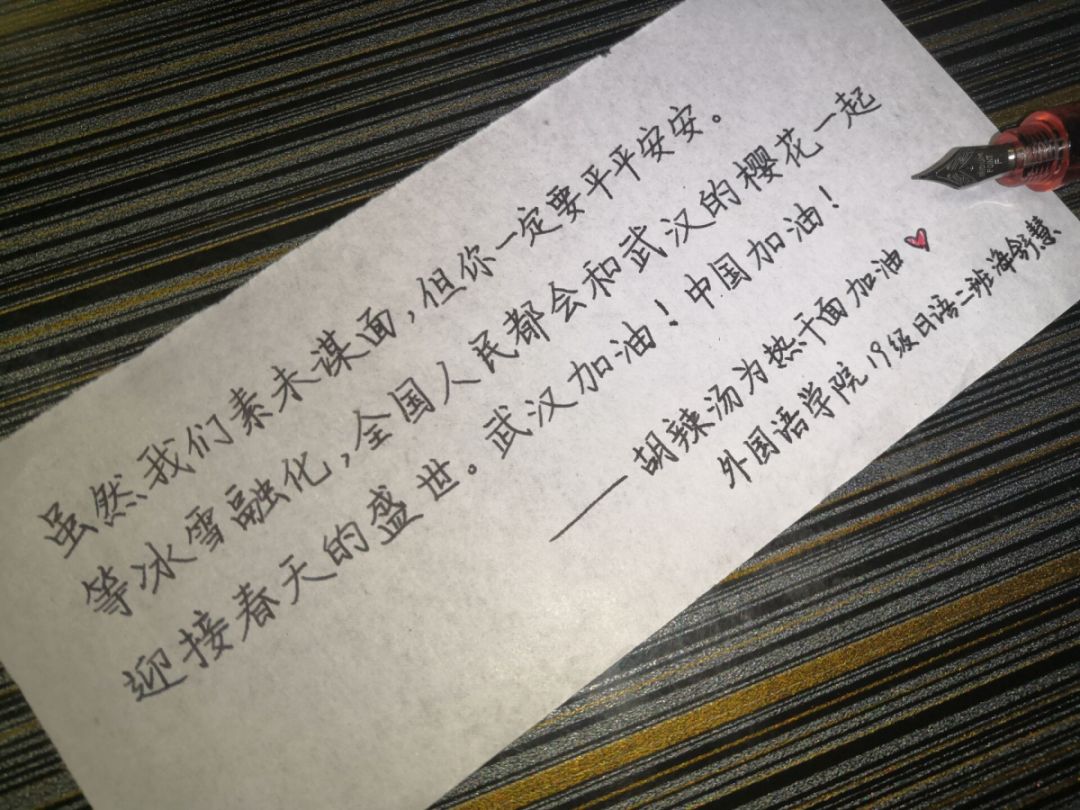 虽然我们素未谋面，但你一定要平平安安。
等冰雪融化，全国人民都会和武汉的樱花一起
迎接春天的盛世。武汉加油！中国加油！
——胡辣汤为热干面加油
外国语学院19级日语二班海舒慧